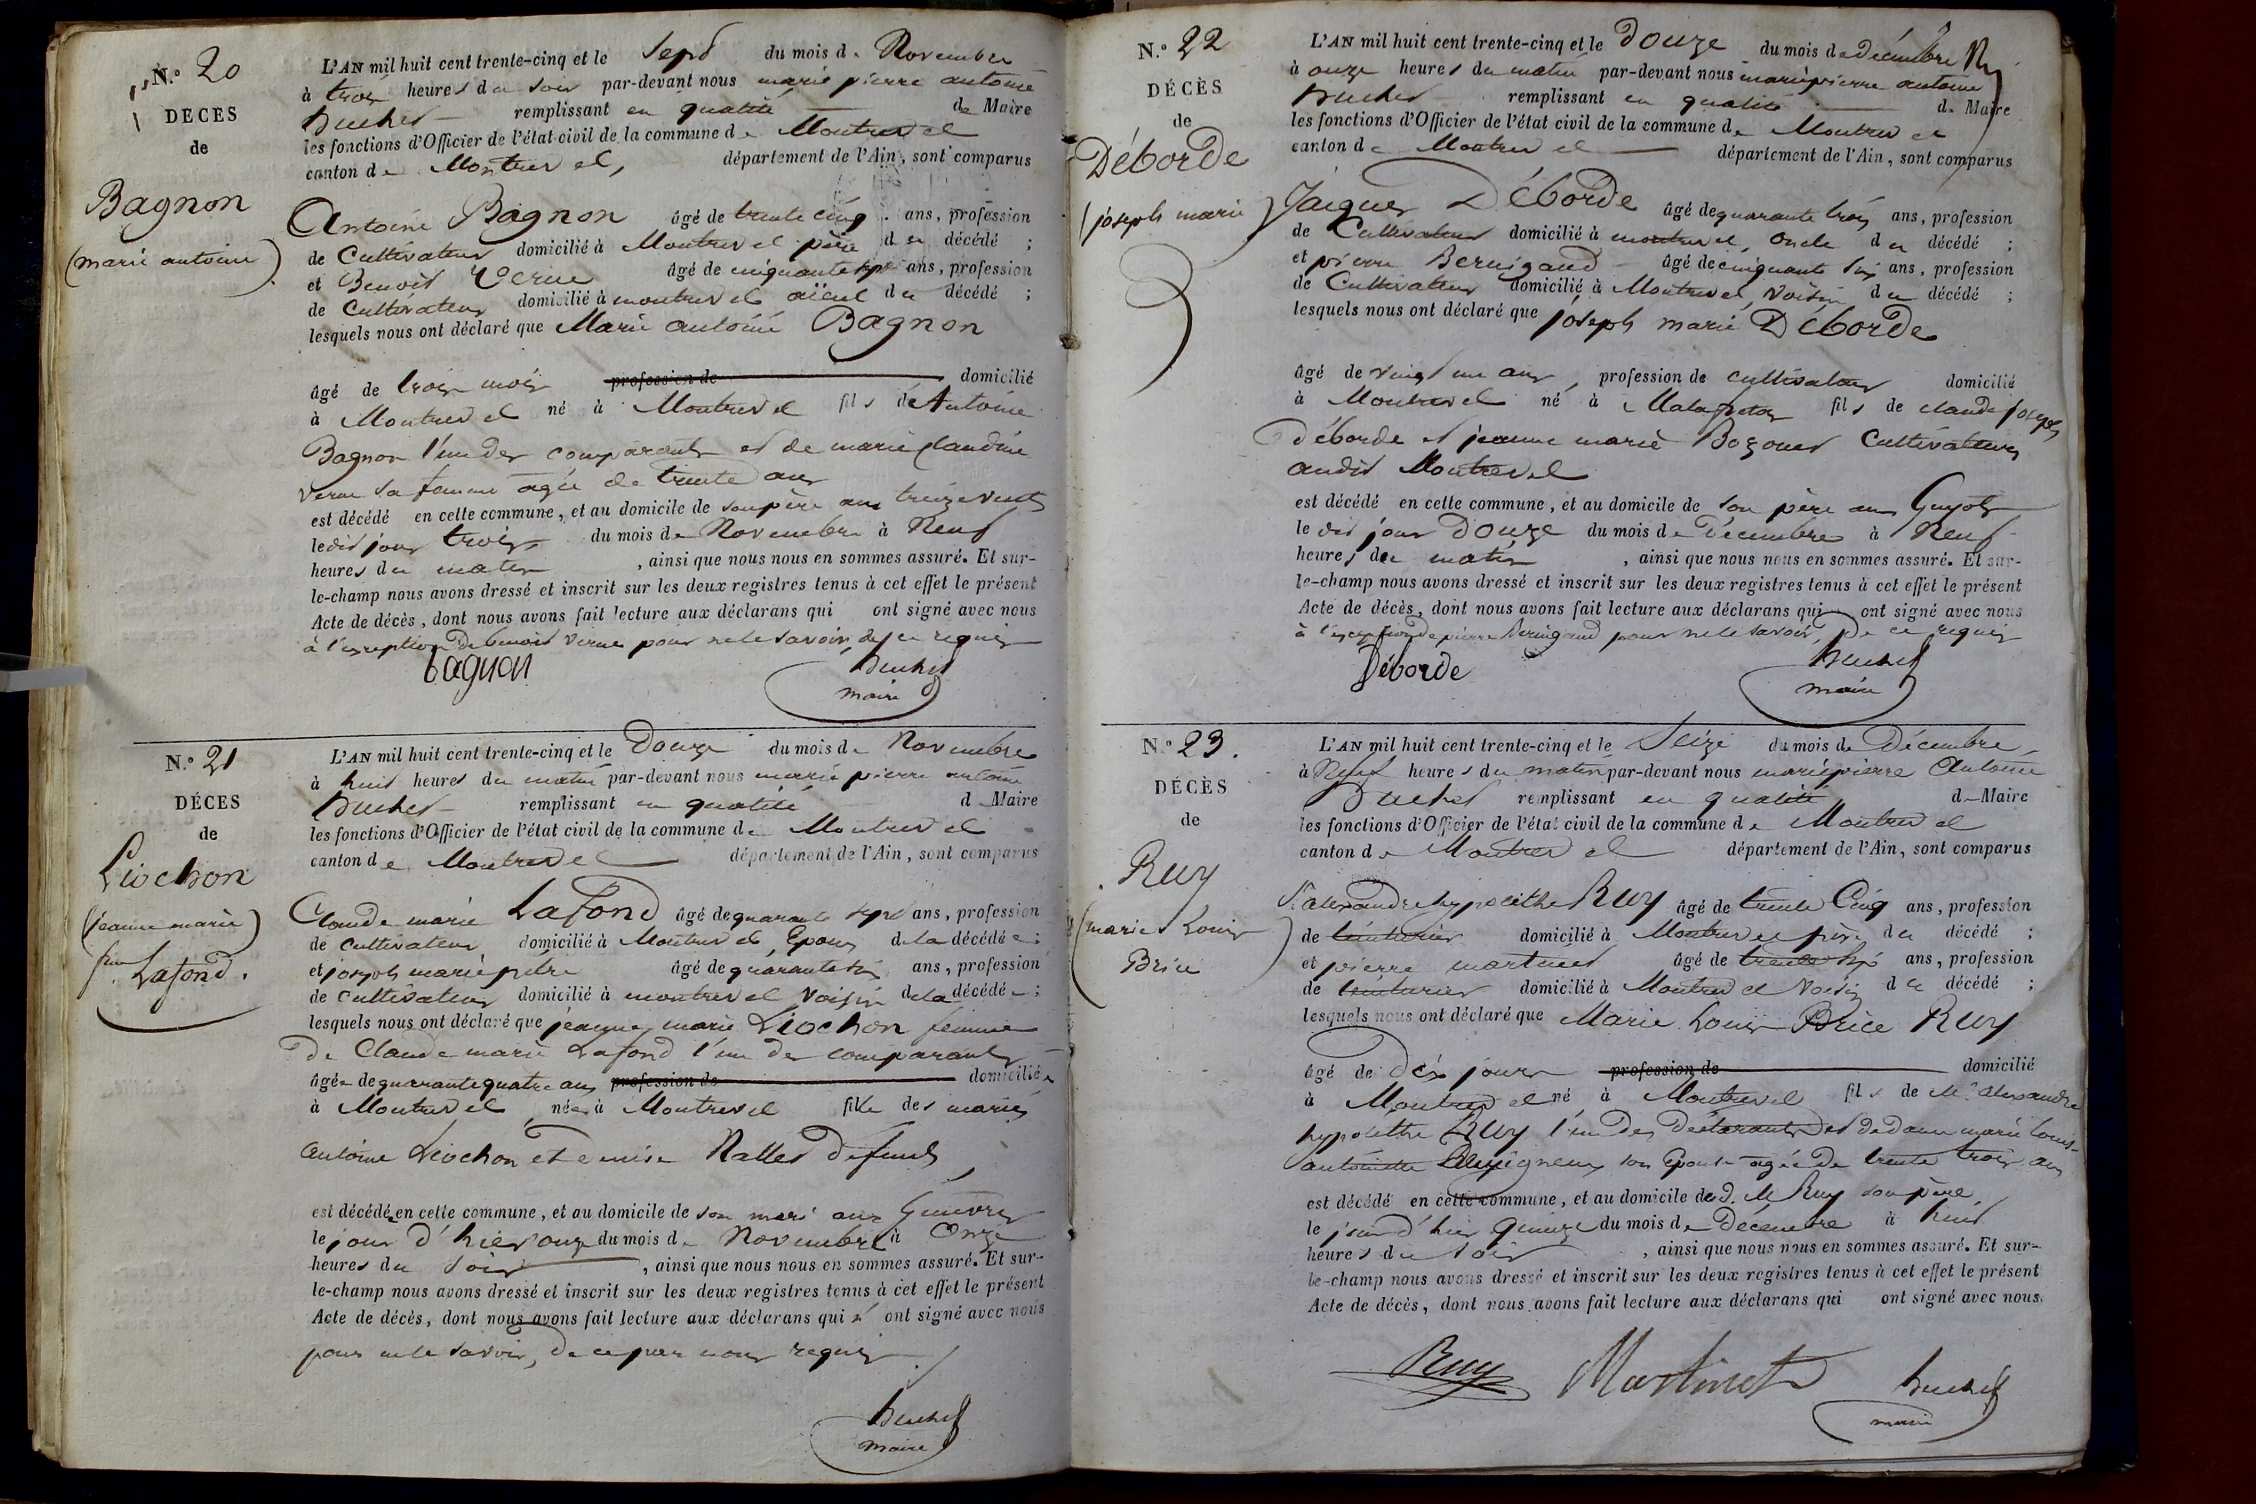 N.º 20
DÉCÈS
de
Bagnon
(marie antoine)
L'AN mil huit cent trente-cinq et le sept du mois de Novembre
à trois heures du soir par-devant nous marie pierre antoine
Buchet remplissant en qualité de Maire
les fonctions d'Officier de l'état civil de la commune de Montrevel
canton de Montrevel, département de l'Ain, sont comparus
Antoine Bagnon âgé de trente cinq ans, profession
de Cultivateur domicilié à Montrevel père du décédé ;
et Benoit Verne âgé de cinquante sept ans, profession
de Cultivateur domicilié à montrevel aïeul du décédé ;
lesquels nous ont déclaré que Marie antoine Bagnon
âgé de trois mois profession de domicilié
à Montrevel né à Montrevel fils de Antoine
Bagnon l'un des comparants et de marie Claudine
Verne sa femme agée de trente ans
est décédé en cette commune, et au domicile de son père aux treize vents
le dit jour trois du mois de Novembre à Neuf
heures du matin, ainsi que nous nous en sommes assuré. Et sur-
le-champ nous avons dressé et inscrit sur les deux registres tenus à cet effet le présent
Acte de décès, dont nous avons fait lecture aux déclarans qui ont signé avec nous
à l'exception de benoit Verne pour ne le savoir, de ce requis
bagnon Buchet
maire
N.º 21
DÉCÈS
de
Liochon
(jeanne marie)
fme Lafond.
L'AN mil huit cent trente-cinq et le Douze du mois de Novembre
à huit heures du matin par-devant nous marie pierre antoine
Buchet remplissant en qualité de Maire
les fonctions d'Officier de l'état civil de la commune de Montrevel
canton de Montrevel département de l'Ain, sont comparus
Claude marie Lafond âgé de quarante sept ans, profession
de cultivateur domicilié à Montrevel, Epoux de la décédée ;
et joseph marie âgé de quarante six ans, profession
de cultivateur domicilié à montrevel voisin de la décédée ;
lesquels nous ont déclaré que jeanne marie Liochon femme
De Claude marie Lafond l'un des comparants
âgée de quarante quatre ans profession de domiciliée
à Montrevel née à Montrevel fille des mariés
antoine Liochon et Denise Nallet défunts
est décédée en cette commune, et au domicile de son mari aux
le jour d'hier onze du mois de Novembre à Onze
heures du soir, ainsi que nous nous en sommes assuré. Et sur-
le-champ nous avons dressé et inscrit sur les deux registres tenus à cet effet le présent
Acte de décès, dont nous avons fait lecture aux déclarans qui n'ont signé avec nous
pour ne le savoir, de ce par nous requis
Buchet
maire
N.º 22
DÉCÈS
de
Déborde
(joseph marie)
L'AN mil huit cent trente-cinq et le Douze du mois de décembre
à onze heures du matin par-devant nous marie pierre antoine
Buchet remplissant en qualité de Maire
les fonctions d'Officier de l'état civil de la commune de Montrevel
canton de Montrevel département de l'Ain, sont comparus
Jâques Déborde âgé de quarante trois ans, profession
de Cultivateur domicilié à montrevel, oncle du décédé ;
et pierre Bernigaud âgé de cinquante six ans, profession
de Cultivateur domicilié à Montrevel, voisin du décédé ;
lesquels nous ont déclaré que joseph marie Déborde
âgé de vingt un ans, profession de cultivateur domicilié
à Montrevel né à Malafretaz fils de claude joseph
déborde et jeanne marie Bozonet Cultivateurs
audit Montrevel
est décédé en cette commune, et au domicile de son père aux Guyots
le dit jour Douze du mois de Décembre à Neuf
heures du matin, ainsi que nous nous en sommes assuré. Et sur-
le-champ nous avons dressé et inscrit sur les deux registres tenus à cet effet le présent
Acte de décès, dont nous avons fait lecture aux déclarans qui ont signé avec nous
à l'exception de pierre Bernigaud pour ne le savoir, de ce requis
Déborde Buchet
maire
N.º 23.
DÉCÈS
de
Ruy
(marie Louis
Brice)
L'AN mil huit cent trente-cinq et le Seize du mois de Décembre
à Neuf heures du matin par-devant nous marie pierre Antoine
Buchet remplissant en qualité de Maire
les fonctions d'Officier de l'état civil de la commune de Montrevel
canton de Montrevel département de l'Ain, sont comparus
alexandre hypolithe Ruy âgé de trente Cinq ans, profession
de teinturier domicilié à Montrevel père du décédé ;
et pierre martinet âgé de trente sept ans, profession
de teinturier domicilié à Montrevel Voisin du décédé ;
lesquels nous ont déclaré que Marie Louis Brice Ruy
âgé de dix jours profession de domicilié
à Montrevel né à Montrevel fils de Mr alexandre
hypolithe Ruy l'un des Déclarants et de dame marie Louise
antoinette son Epouse agée de trente trois ans
est décédé en cette commune, et au domicile dud. Mr Ruy son père,
le jour d'hier quinze du mois de Décembre à huit
heures du soir, ainsi que nous nous en sommes assuré. Et sur-
le-champ nous avons dressé et inscrit sur les deux registres tenus à cet effet le présent
Acte de décès, dont nous avons fait lecture aux déclarans qui ont signé avec nous.
Ruy Martinet Buchet
maire